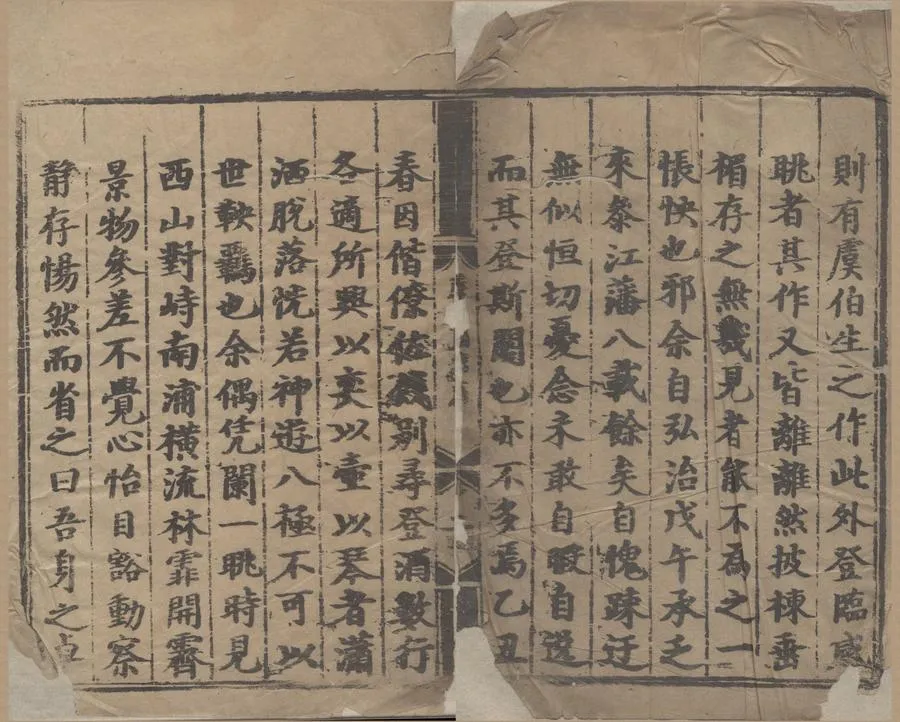 則有虞伯生之作此外登臨感
眺者其作又皆離離然披棟垂
楣存之無幾見者能不為之一
悵怏也邪余自弘治戊午承乏
來叅江藩八載餘矣自愧踈迂
無似恒切憂念未敢自暇自逸
而其登斯閣也亦不多焉乙丑
春因偕僚佐餞别尋登酒數行
各適所興以奕以壷以琴者蕭
洒脫落恍若神遊八極不可以
世鞅羈也余偶凭闌一眺時見
西山對峙南浦横流林霏開霽
景物參差不覺心怡目豁動察
静存惕然而省之曰吾身之